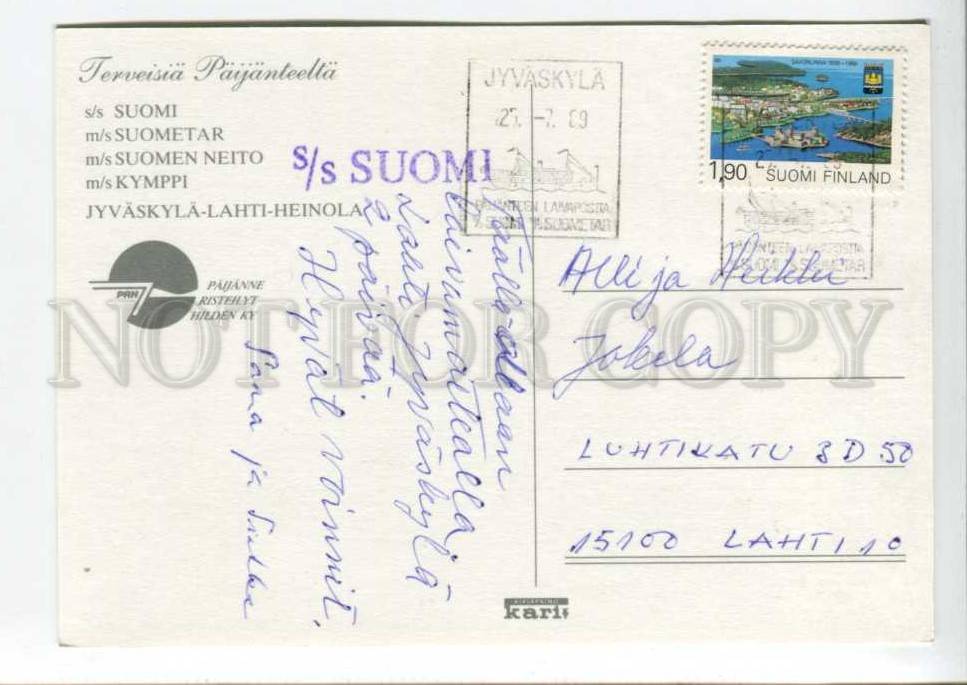 Terveisiä Päijänteeltä
s/s SUOMI
m/s SUOMETAR
m/s SUOMEN NEITO
m/s KYMPPI
JYVÄSKYLÄ-LAHTI-HEINOLA
PRH
PÄIJÄNNE
RISTEILYT
HILDEN KY
s/s SUOMI
JYVÄSKYLÄ
-7. 89
PÄIJÄNTEEN LAIVAPOSTIA
S/S SUOMI M/S SUOMETAR
SAVONLINNA 1639-1989
1,90 SUOMI FINLAND
PÄIJÄNTEEN LAIVAPOSTIA
S/S SUOMI M/S SUOMETAR
Täällä ollaan
laivamatkalla
Lahti Jyväskylä
2 päivää.
Hyvät voinnit.
ja
Alli ja Heikki
Jokela
LUHTIKATU 3 D 50
15100 LAHTI 10
kari
NOT FOR COPY